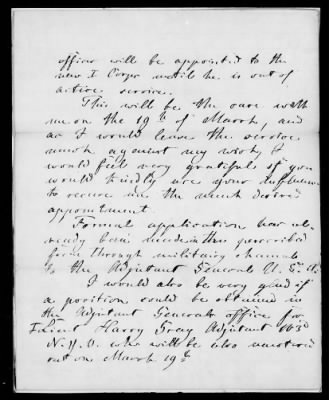 officer will be appointed to the
new I Corps until he is out of
active service.
This will be the case with
me on the 19th of March, and
as I would leave the service
much against my wish, I
would feel very grateful if you
would kindly use your influence
to secure me the much desired
appointment.
Formal application has al-
ready been made in the prescribed
form through military channels
to the Adjutant General U. S. A.
I would also be very glad if
a position could be obtained in
the Adjutant Generals office for
Lieut Harry Gray Adjutant 163d
N.Y.V. who will be also mustered
out on March 19th